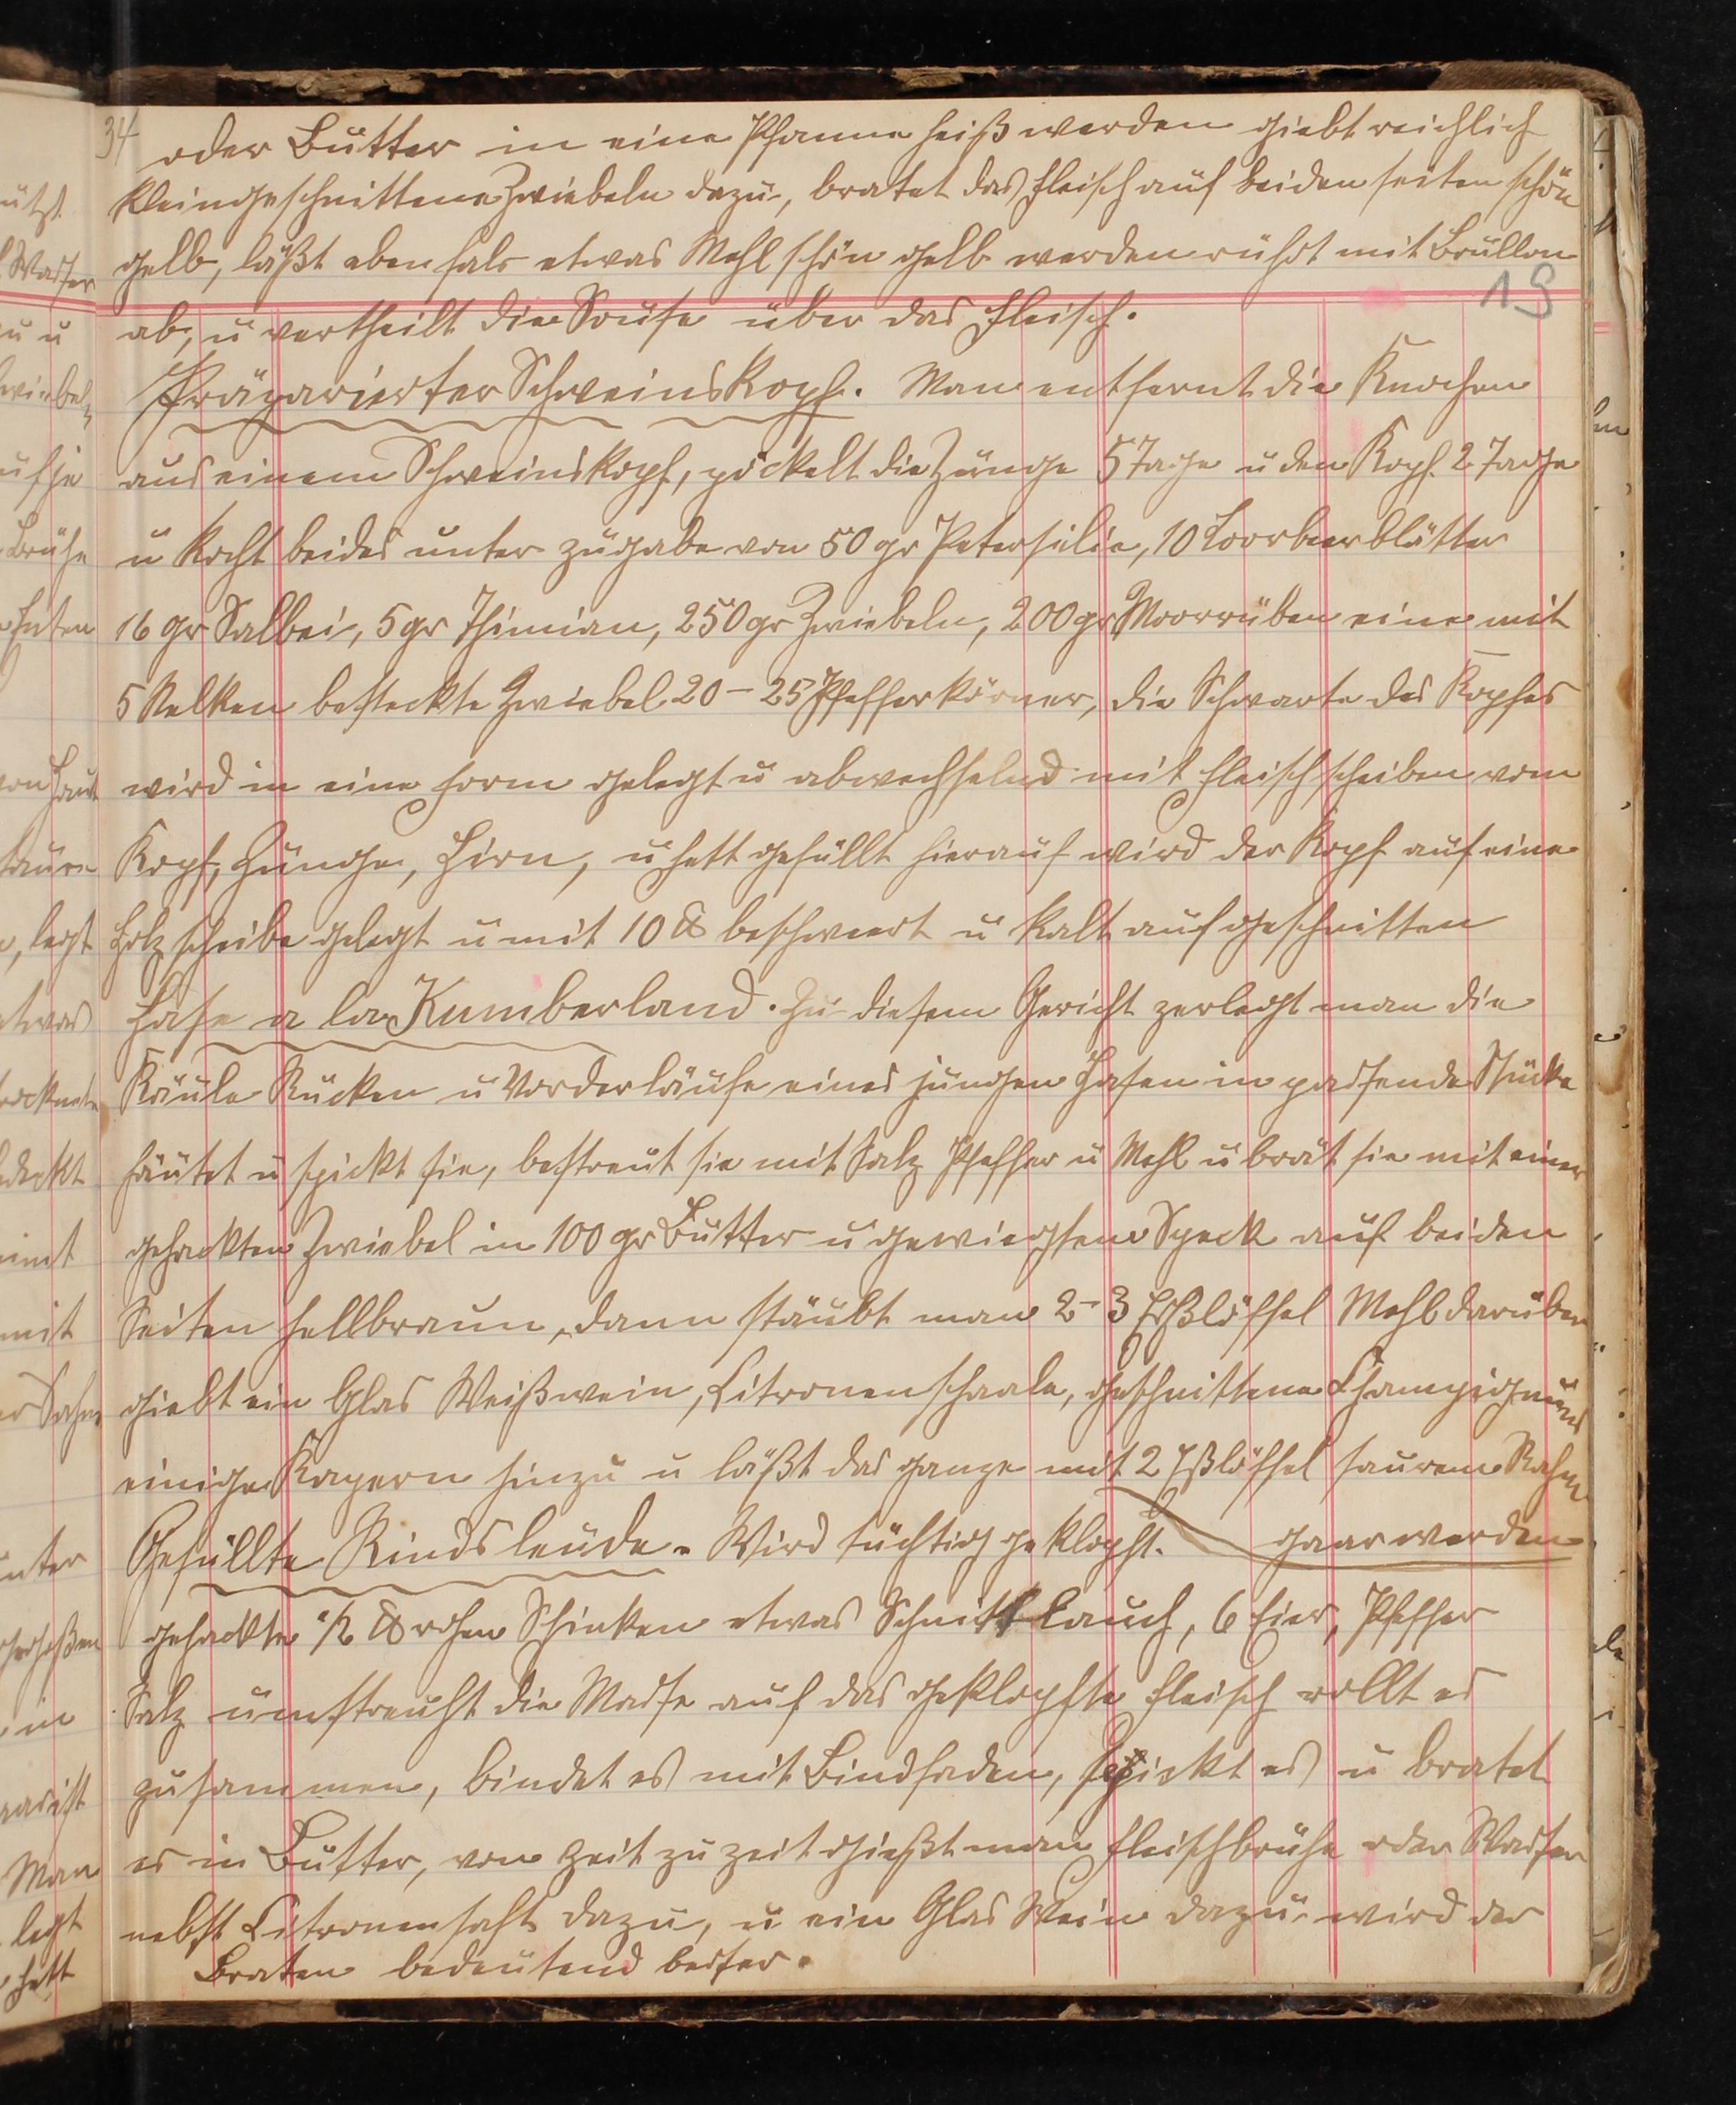 34
oder Butter in eine Pfanne heiß werden giebt reichlich
kleingeschnittene Zwiebeln dazu, bratet das Fleisch auf beiden seiten schön
gelb, läßt eben fals etwas Mehl schön gelb werden rührt mit Brullon
19
ab, u vertheilt die Souse über das Fleisch.
Präparierter Schweinskopf. Man entfernt die Knochen
aus einem Schweinskopf, pöckelt die Zunge 5 Tage u den Kopf 2 Tage
u kocht beides unter zugabe von 50 gr Petersilie, 10 Loorbeerblätter
16 gr Salbei, 5 gr Thimian, 250 gr Zwiebeln, 200 gr Moorrüben eine mit
5 Nelken besteckte Zwiebel 20 - 25 Pfefferkörner, die Schwarte des Kopfes
wird in eine Form gelegt u abwechselnd mit Fleischscheiben vom
Kopf, Zunge, Hirn, u Fett gefüllt hierauf wird der Kopf auf eine
Holzscheibe gelegt u mit 10 ℔ beschwert u kalt aufgeschnitten
Hase a la Kumberland. Zu diesem Gericht zerlegt man die
Käule Rücken u Vorderläufe eines jungen Hasen in passende Stücke
häutet u spickt sie, bestreut sie mit Salz Pfeffer u Mehl u brät sie mit einer
gehackten Zwiebel in 100 gr Butter u gewiegten Speck auf beiden
Seiten hellbraun, dann stäubt man 2-3 Eßlöffel Mehl darüber
giebt ein Glas Weißwein, Citronenschaale, geschnittene Champignons
einige Kapern hinzu u läßt das ganze mit 2 Eßlöffel saurem Rahm
gaar werden
Gefüllte Rindsleude. Wird tüchtig geklopft.
gehackte 1/2 ℔ rohen Schinken etwas Schnittlauch, 6 Eier, Pfeffer
Salz umstreuht die Masse auf das geklopfte Fleisch rollt es
zusammen, bindet es mit Bindfaden, spickt es u bratet
es in Butter, von Zeit zu Zeit gießt man Fleischbrühe oder Wasser
nebst Citronensaft dazu, u ein Glas Wein dazu wird der
Braten bedeutend besser.